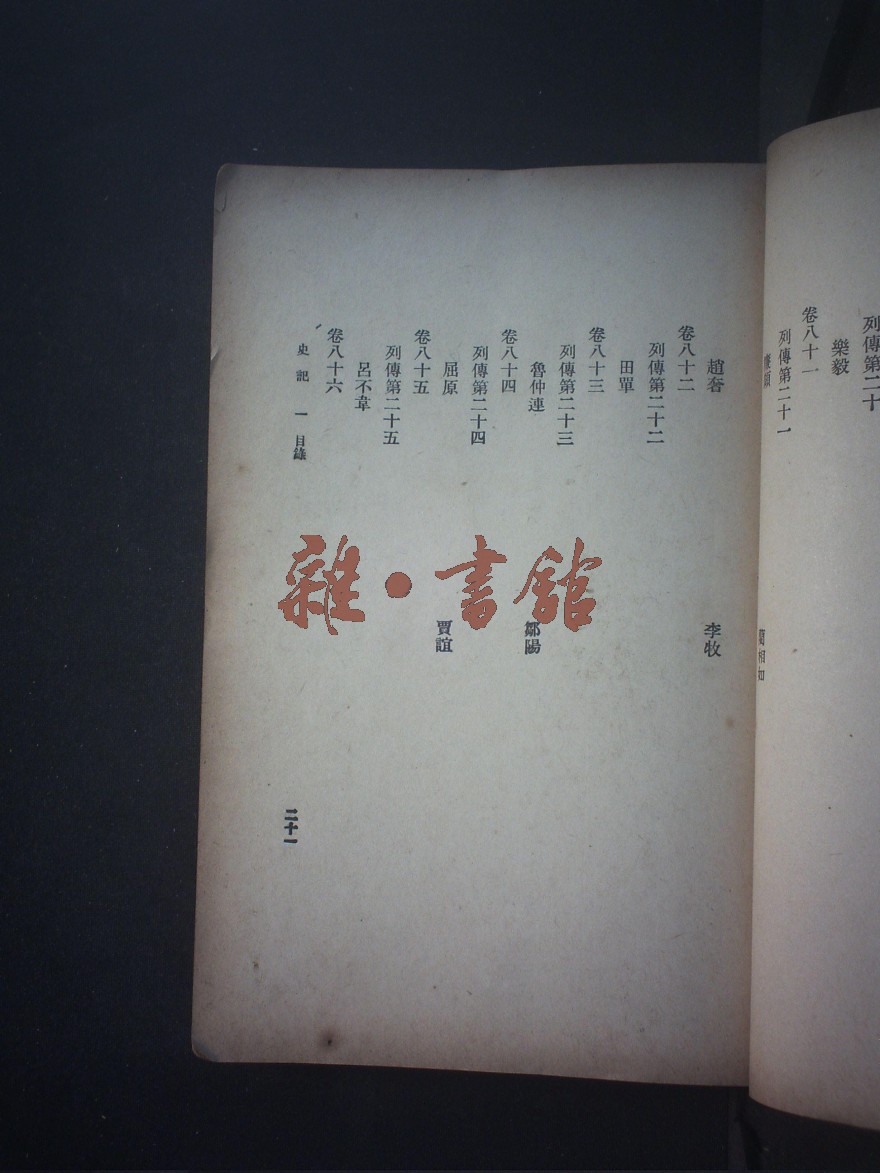 列傳第二十
樂毅
卷八十一
列傳第二十一
相如
趙奢 李牧
卷八十二
列傳第二十二
田單
卷八十三
列傳第二十三
魯仲連 鄒陽
卷八十四
列傳第二十四
屈原 賈誼
卷八十五
列傳第二十五
呂不韋
卷八十六
史記 一 目錄 二十一
雜·書館